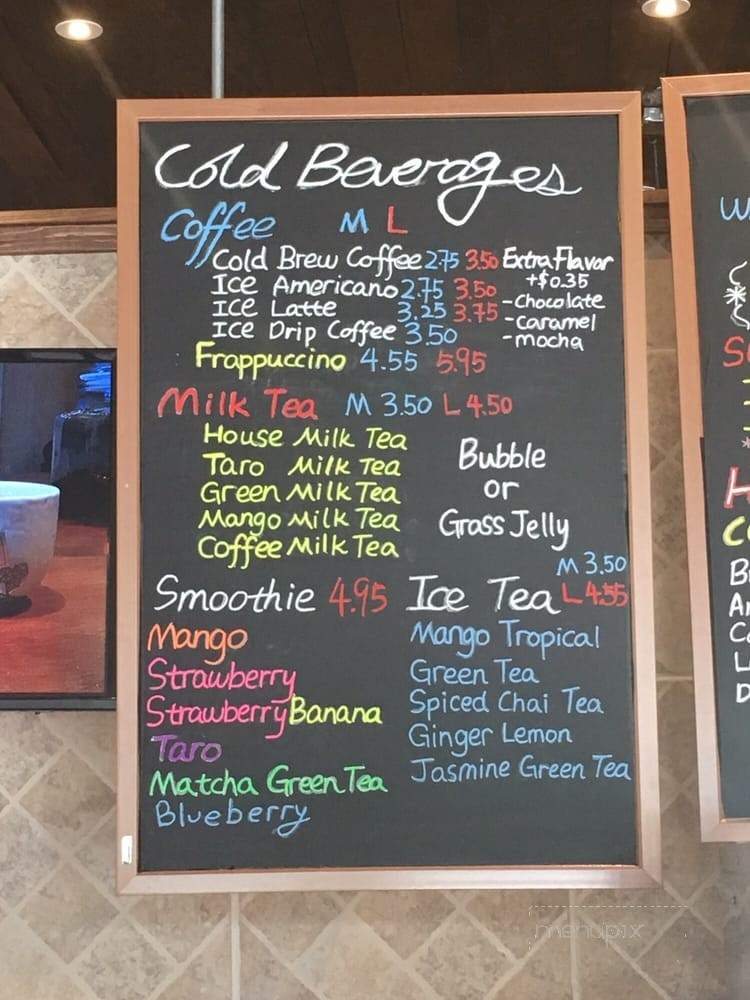 Cold Beverages
Coffee M L
Cold Brew Coffee 2.75 3.50
Ice Americano 2.75 3.50
Ice Latte 3.25 3.75
Ice Drip Coffee 3.50
Extra Flavor
+$0.35
-chocolate
-caramel
-mocha
Frappuccino 4.55 5.95
Milk Tea M 3.50 L 4.50
House Milk Tea
Taro Milk Tea
Green Milk Tea
Mango Milk Tea
Coffee Milk Tea
Bubble
or
Grass Jelly
Smoothie 4.95
Mango
Strawberry
Strawberry Banana
Taro
Matcha Green Tea
Blueberry
M 3.50
Ice Tea L 4.55
Mango Tropical
Green Tea
Spiced Chai Tea
Ginger Lemon
Jasmine Green Tea
menupix